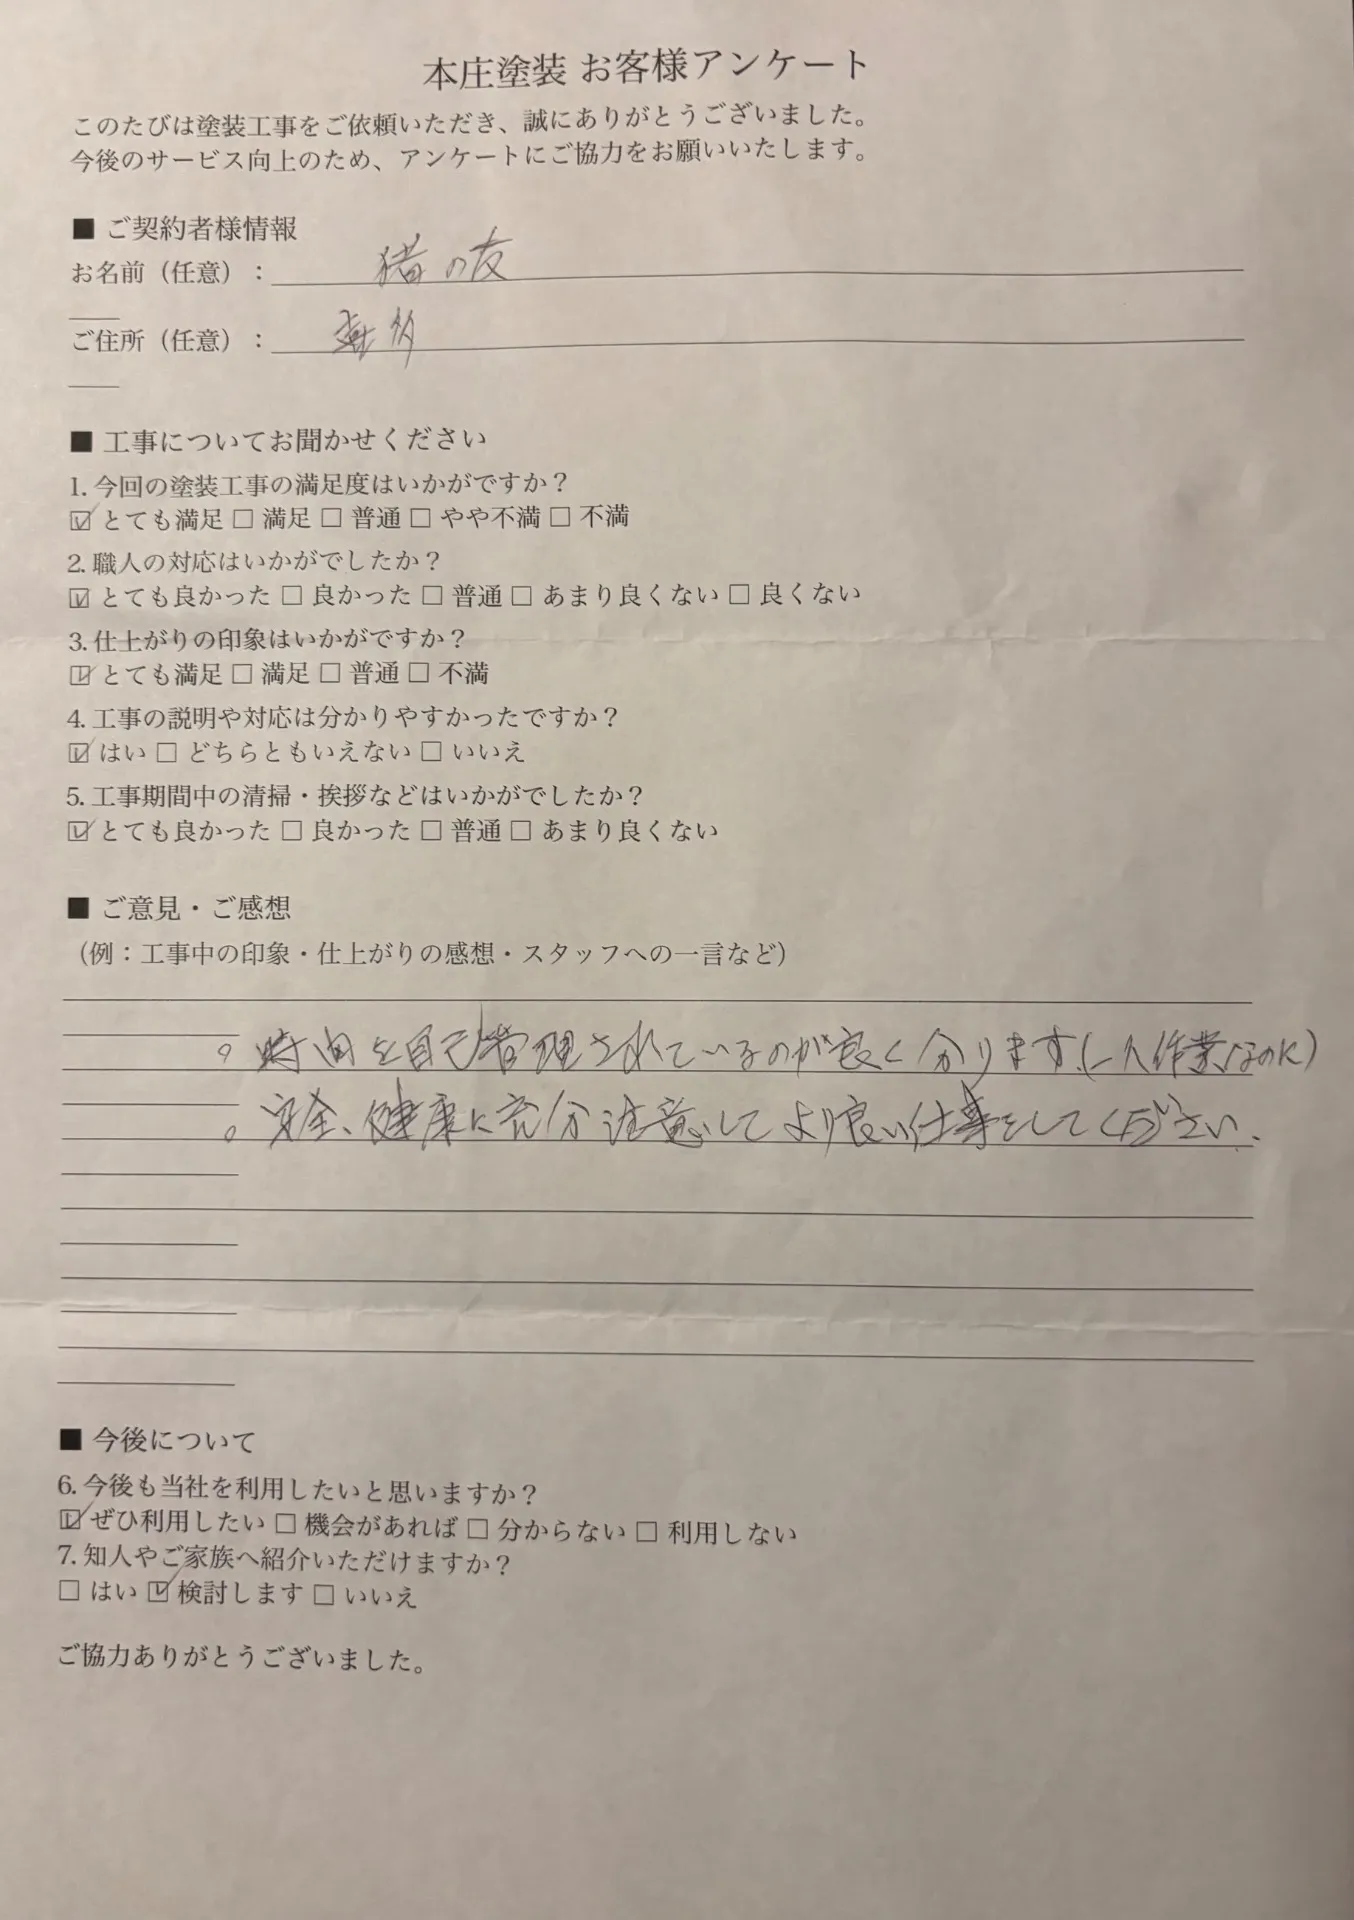 本庄塗装 お客様アンケート
このたびは塗装工事をご依頼いただき、誠にありがとうございました。
今後のサービス向上のため、アンケートにご協力をお願いいたします。
■ ご契約者様情報
お名前（任意）： 猪の友
ご住所（任意）： 喜多
■ 工事についてお聞かせください
1. 今回の塗装工事の満足度はいかがですか？
☑ とても満足 □ 満足 □ 普通 □ やや不満 □ 不満
2. 職人の対応はいかがでしたか？
☑ とても良かった □ 良かった □ 普通 □ あまり良くない □ 良くない
3. 仕上がりの印象はいかがですか？
☑ とても満足 □ 満足 □ 普通 □ 不満
4. 工事の説明や対応は分かりやすかったですか？
☑ はい □ どちらともいえない □ いいえ
5. 工事期間中の清掃・挨拶などはいかがでしたか？
☑ とても良かった □ 良かった □ 普通 □ あまり良くない
■ ご意見・ご感想
（例：工事中の印象・仕上がりの感想・スタッフへの一言など）
。時間を自己管理されているのが良く分ります。（一人作業なのに）
。安全、健康に充分注意してより良い仕事をしてください。
■ 今後について
6. 今後も当社を利用したいと思いますか？
☑ ぜひ利用したい □ 機会があれば □ 分からない □ 利用しない
7. 知人やご家族へ紹介いただけますか？
□ はい ☑ 検討します □ いいえ
ご協力ありがとうございました。